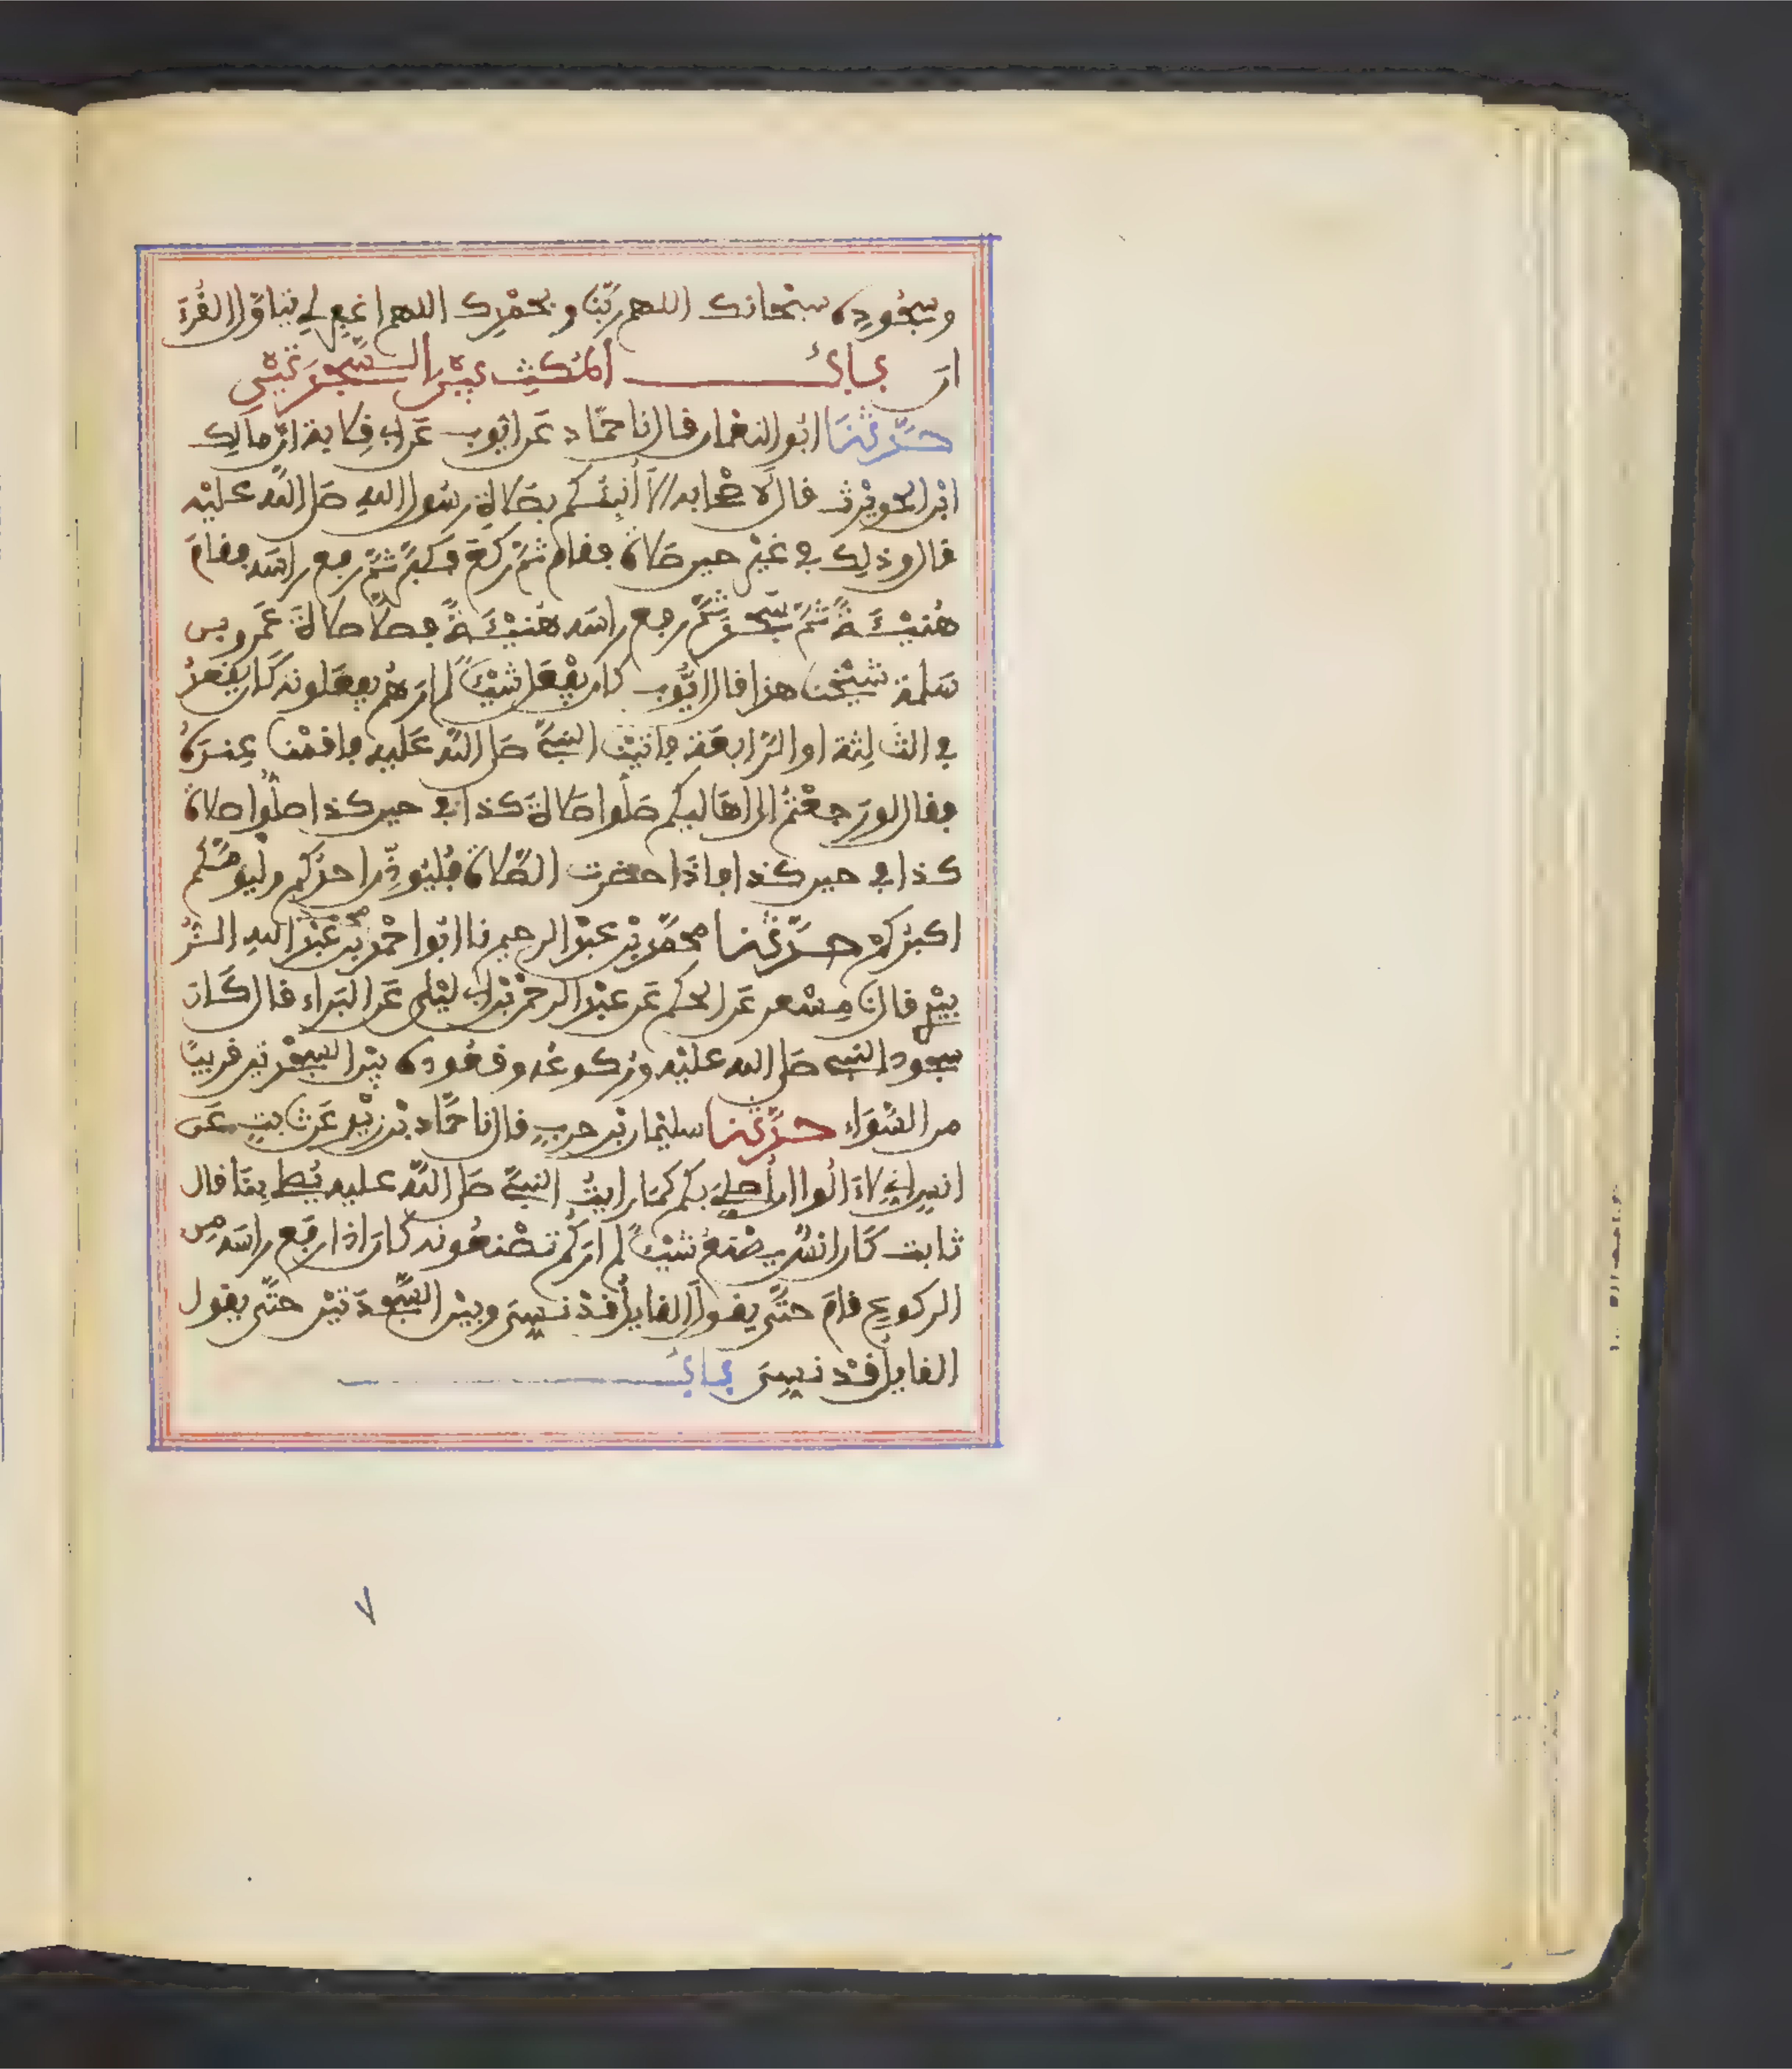 وسجوده سبحانك اللهم ربنا وبحمدك اللهم اغفر لي يتاول القر
ان باب المكث بين السجدتين
حدثنا ابو النعمان قال نا حماد عن ايوب عن ابي قلابة ان مالك
ابن الحويرث قال لاصحابه الا انبئكم بصلاة رسول الله صلى الله عليه
قال وذلك في غير حين صلاة فقام ثم ركع فكبر ثم رفع راسه فقام
هنيئة ثم سجد ثم رفع راسه هنيئة فصلى صلاة عمرو بن
سلمة شيخنا هذا قال ايوب كان يفعل شيئا لم ارهم يفعلونه كان يقعد
في الثالثة او الرابعة فاتينا النبي صلى الله عليه فاقمنا عنده
فقال لو رجعتم الى اهاليكم صلوا صلاة كذا في حين كذا صلوا صلاة
كذا في حين كذا فاذا حضرت الصلاة فليوذن احدكم وليومكم
اكبركم حدثنا محمد بن عبد الرحيم نا ابو احمد محمد بن عبد الله الز
بيري قال نا مسعر عن الحكم عن عبد الرحمن بن ابي ليلى عن البراء قال كان
سجود النبي صلى الله عليه وركوعه وقعوده بين السجدتين قريبا
من السواء حدثنا سليمان بن حرب قال نا حماد بن زيد عن ثابت عن
انس اني لا الوا ان اصلي بكم كما رايت النبي صلى الله عليه يصلي بنا قال
ثابت كان انس يصنع شيئا لم اركم تصنعونه كان اذا رفع راسه من
الركوع قام حتى يقول القايل قد نسي وبين السجدتين حتى يقول
القايل قد نسي باب
٧